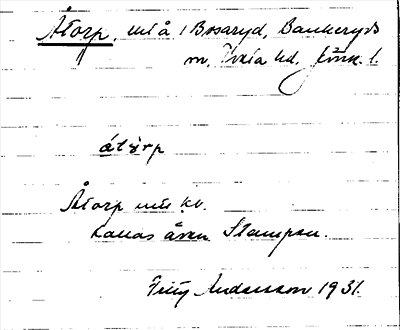 Åtorp, utl å 1 Bosaryd, Bankeryds
sn, Tveta hd, Jönk. l.
átòrp
Åtorp
Kallas även Stampen.
Andersson 1931.